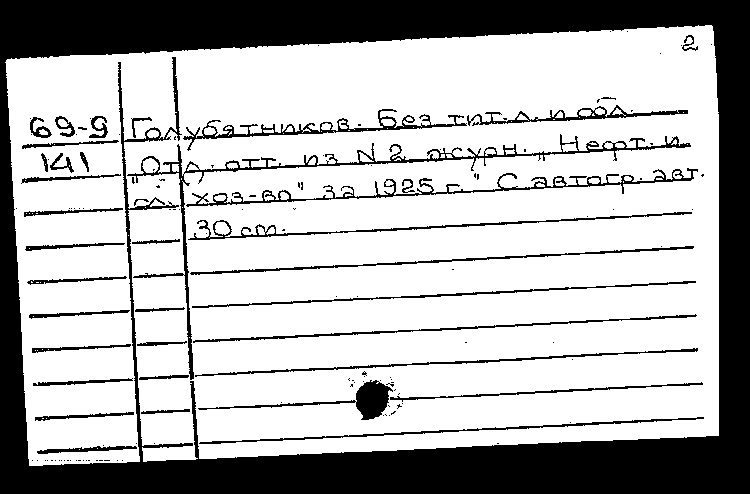 2
69-9 Голубятников. Без тит. л. и обл.
141 „Отд. отт. из N 2 журн. „Нефт. и
сл. хоз-во" за 1925 г." С автогр. авт.
30 cm.